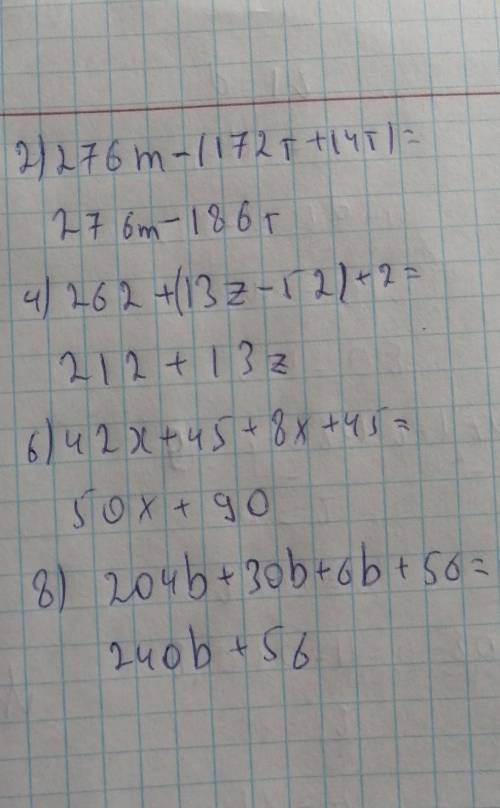 2) 276m-(172т+14т)=
276m-186т
4) 262+(13z-52)+2=
212+13z
6) 42x+45+8x+45=
50x+90
8) 204b+30b+6b+56=
240b+56